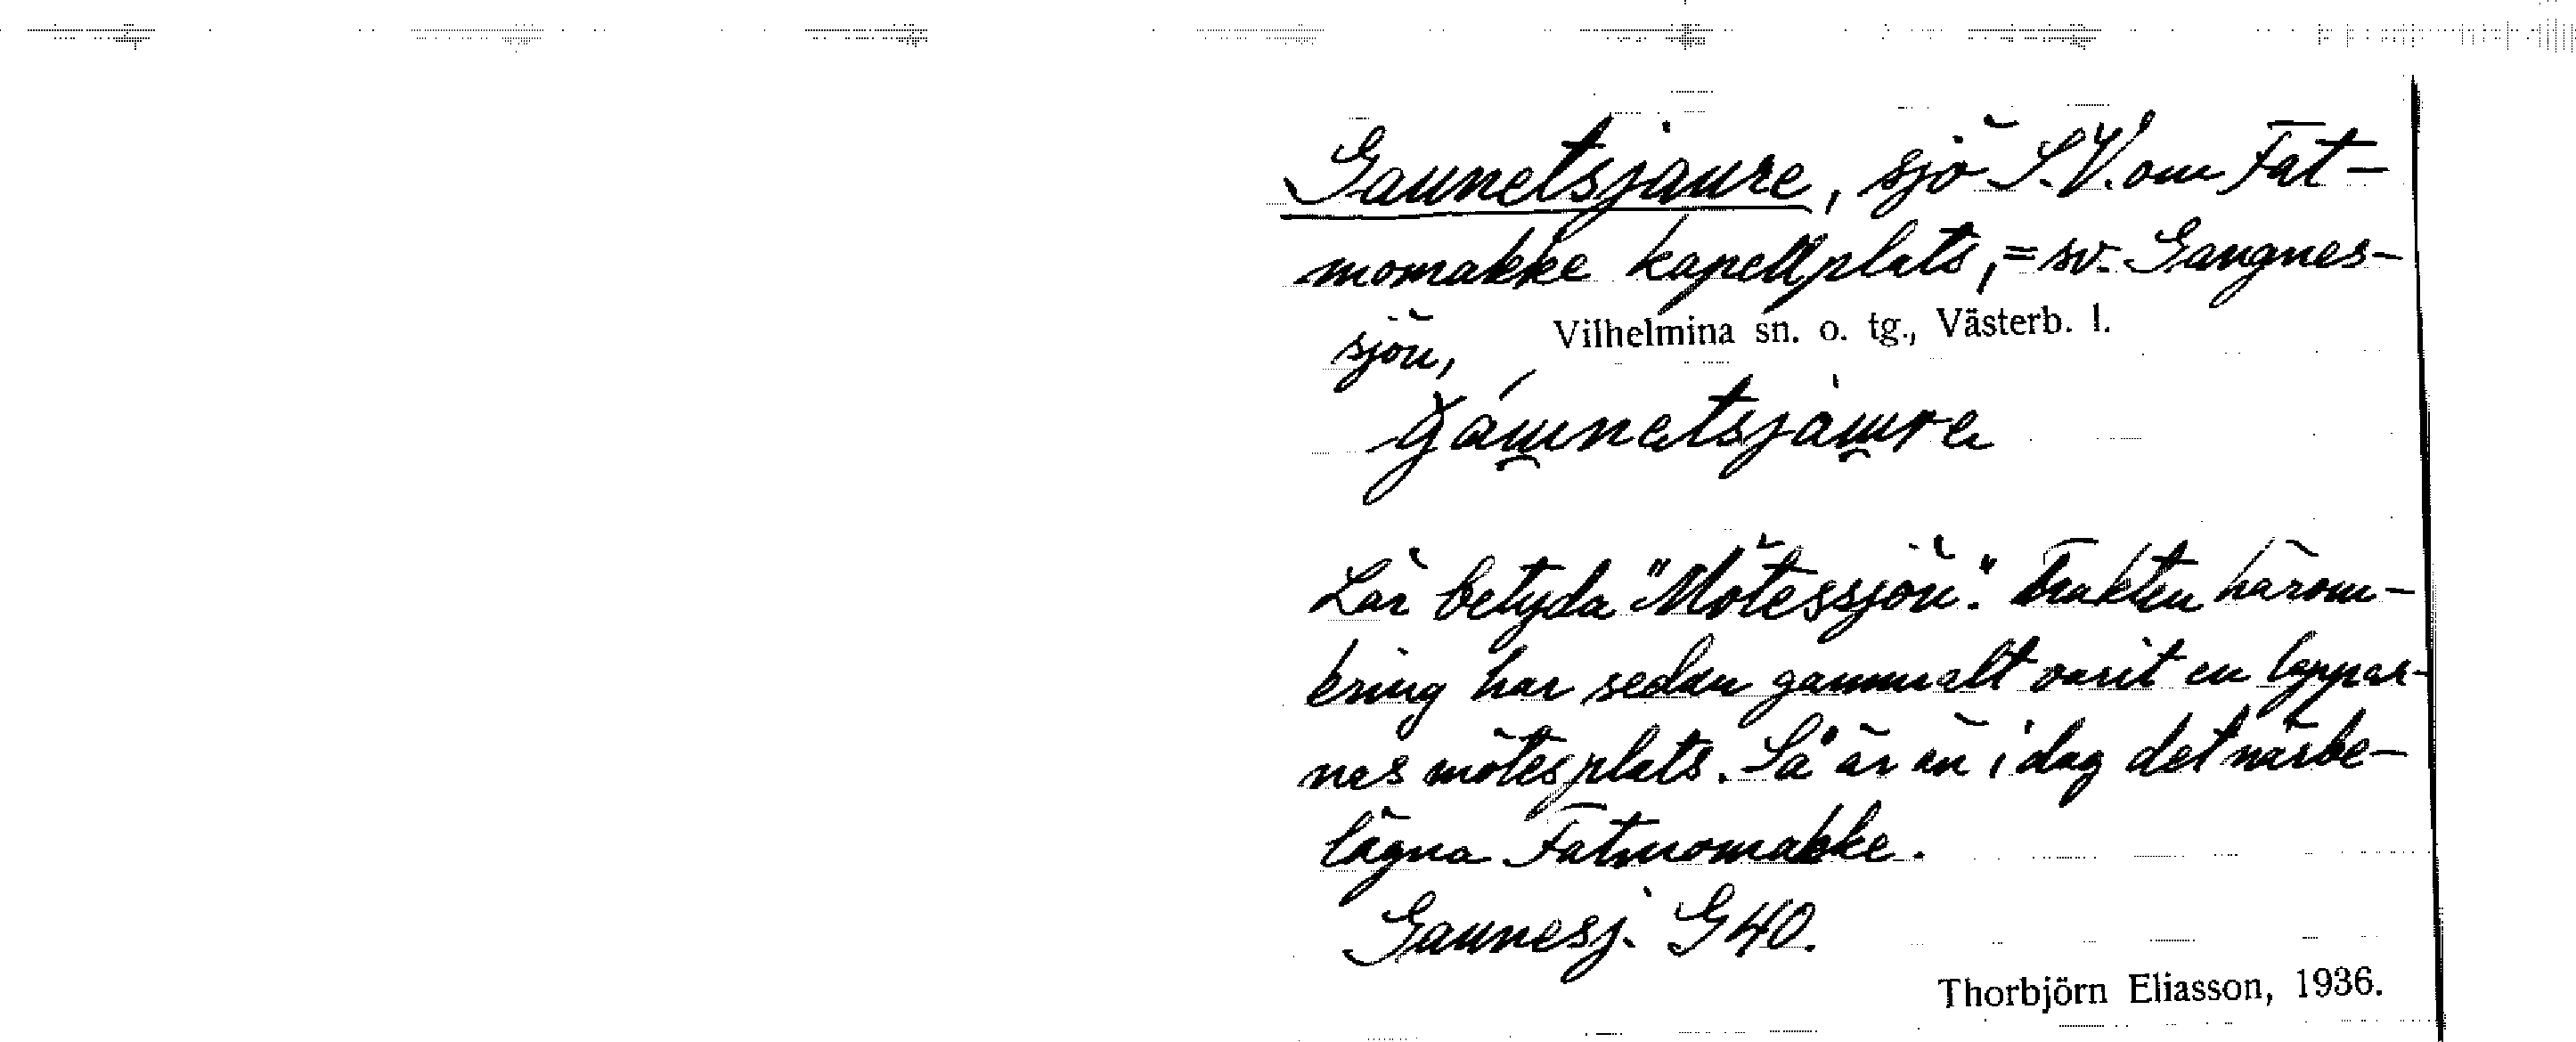 Gaunetsjaure, sjö S.V. om Fat-
momakke kapellplats, = sv. Gaugnes-
sjön, Vilhelmina sn. o. tg., Västerb. l.
gáu̯nɛtsjàu̯rɛ
Lär betyda "Mötessjön". Trakten härom-
kring har sedan gammalt varit en lappar-
nas mötesplats. Så är än i dag det närbe-
lägna Fatmomakke.
Gaunesj. G 40.
Thorbjörn Eliasson, 1936.